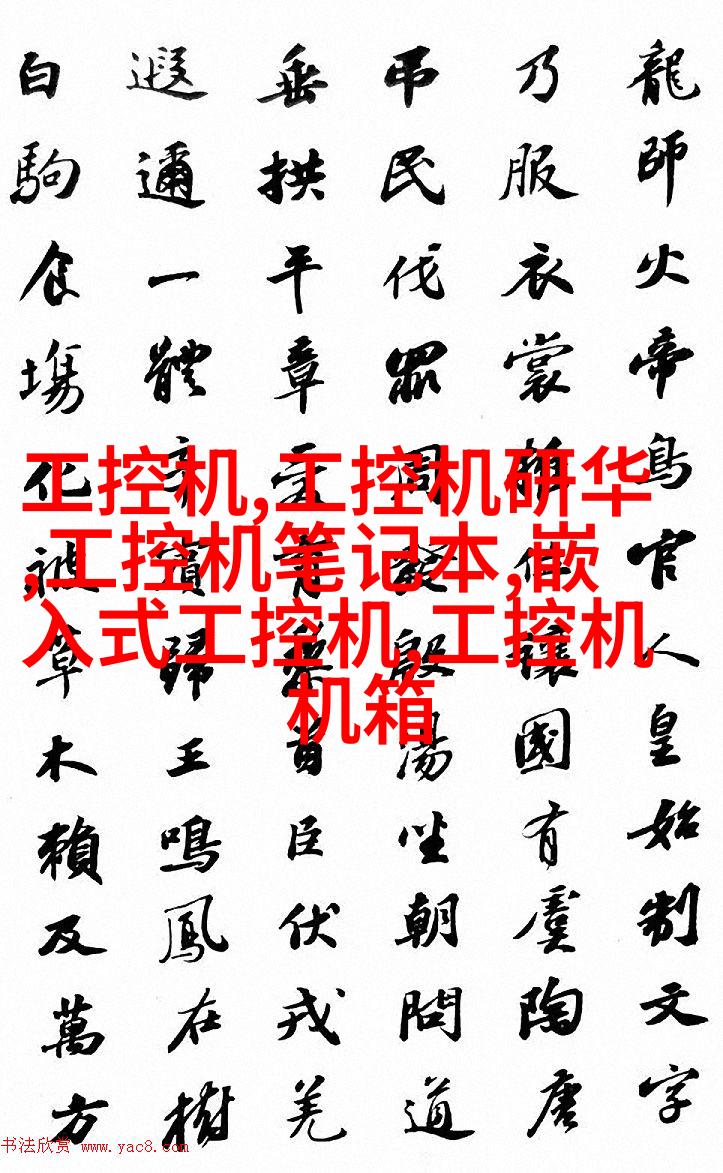 龍師火帝鳥官人皇始制文字
乃服衣裳推位讓國有虞陶唐
弔民伐罪周發殷湯坐朝問道
垂拱平章愛育黎首臣伏戎羌
遐邇一體率賓歸王鳴鳳在樹
白駒食場化被草木賴及萬方
工控机,工控机研华
,工控机笔记本,嵌
入式工控机,工控机
机箱
书法欣赏 www.yac8.com